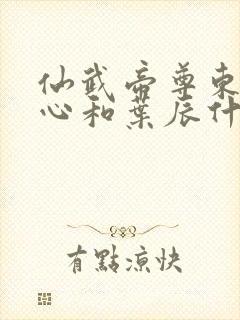 仙武帝尊東
心和葉辰什
有點涼快